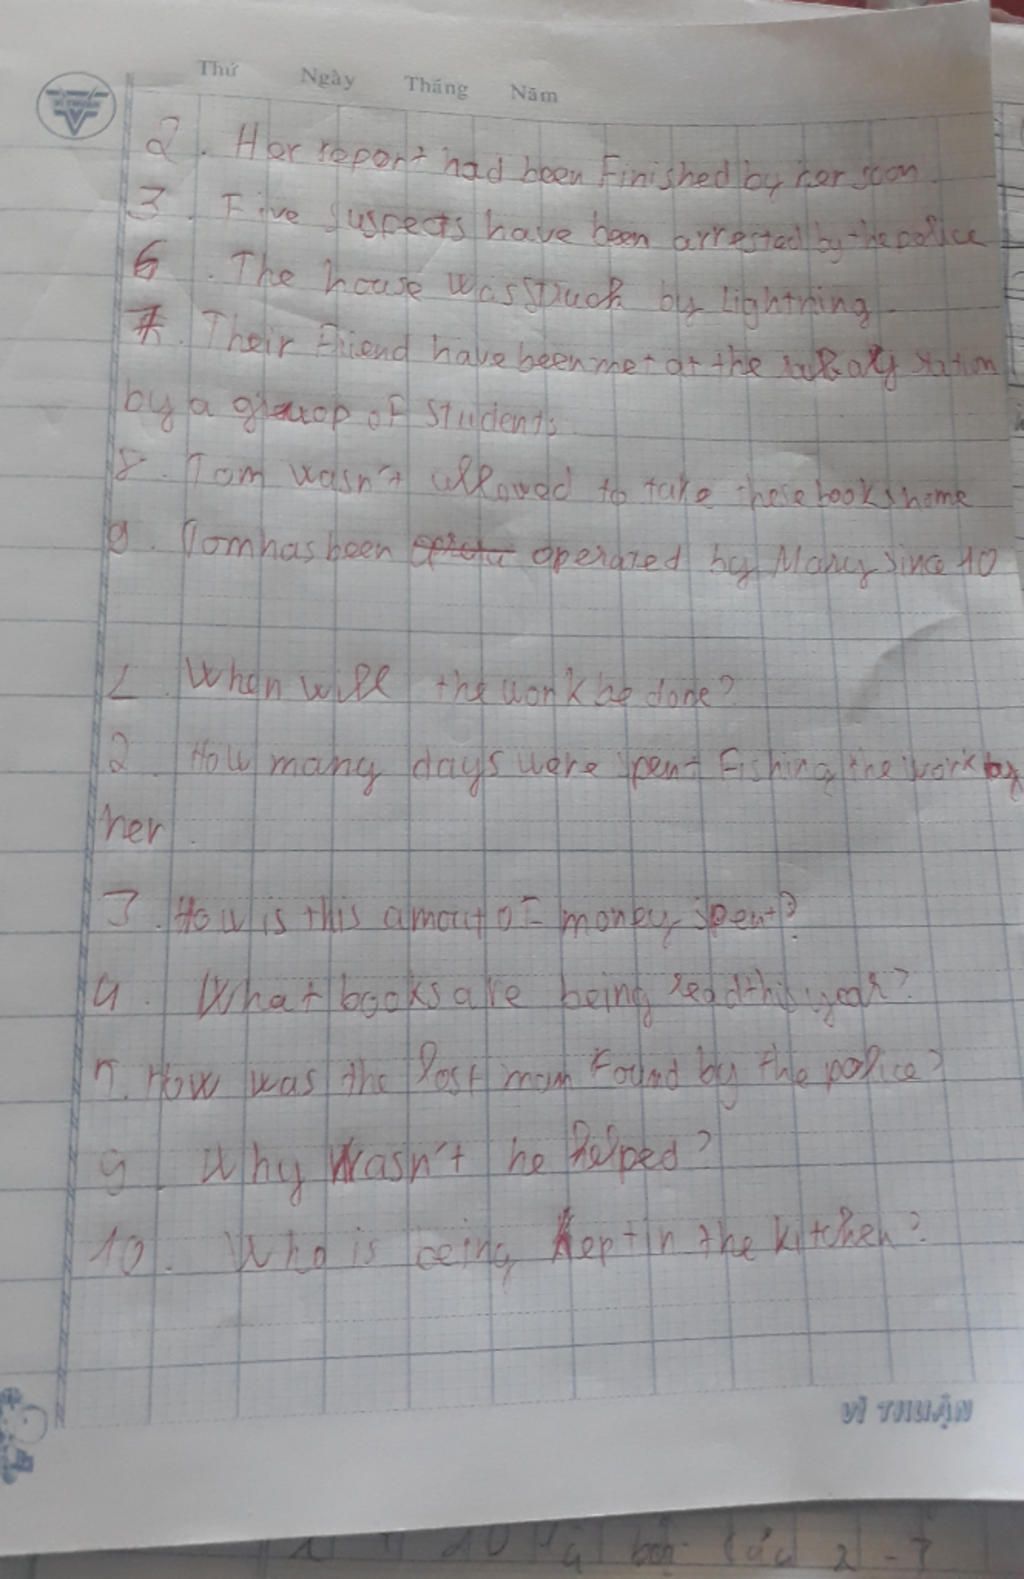 Thứ Ngày Tháng Năm
2. Her report had been Finished by her soon
3. Five suspects have been arrested by the police
6. The house was struck by Lightning
7. Their Friend have been met at the station
by a of students
8. Tom wasn't allowed to take these books home
9. Tom has been operated by Mary since 10
1. When will the work be done?
2. How many days were spent Fishing the work by
her
3. How is this amout of money spent?
4. What books are being read this year?
5. How was the lost man Found by the police?
9. Why wasn't he helped?
10. Who is being kept in the kitchen?
VĨ THUẬN